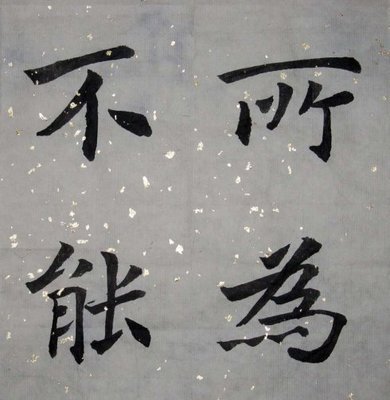 所為
不能